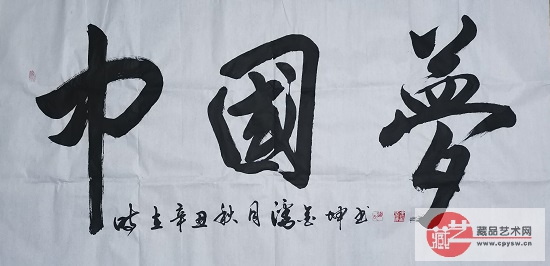 中國夢
时在辛丑秋月潘坤书
藏艺
藏品艺术网
www.cpysw.cn